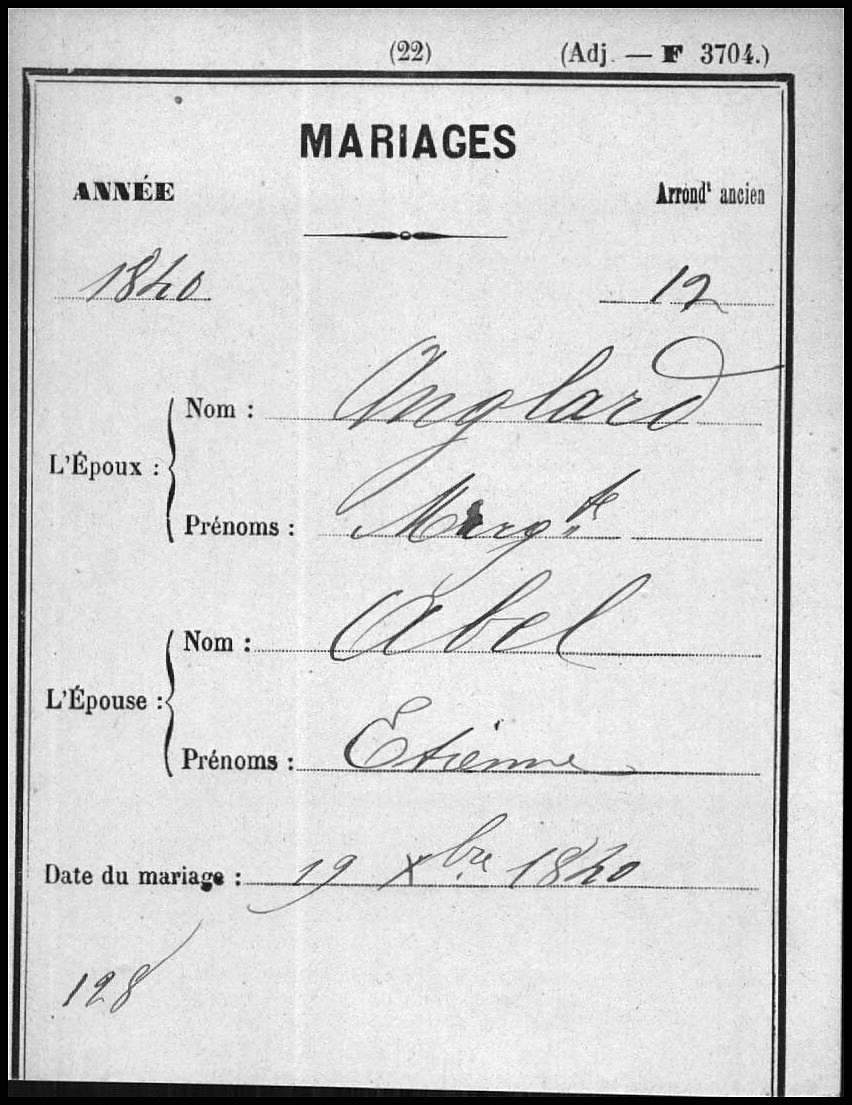 (22) (Adj. — F 3704.)
MARIAGES
ANNÉE Arrondt ancien
1840 12
L'Époux :
Nom : Anglard
Prénoms : Margte
L'Épouse :
Nom : Abel
Prénoms : Etienne
Date du mariage : 19 Xbre 1840
128